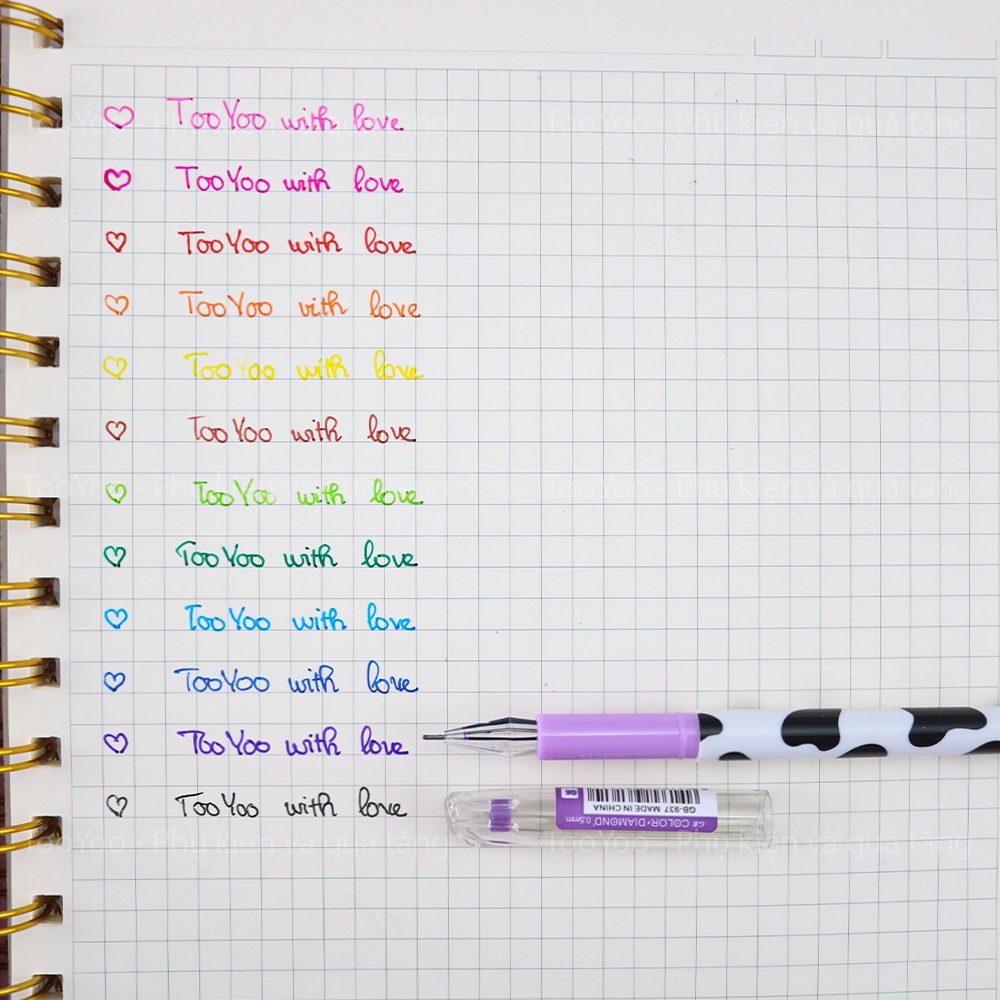 ♡ TooYoo with love
♡ TooYoo with love
♡ TooYoo with love
♡ TooYoo vith love
♡ TooYoo with love
♡ TooYoo with love
♡ TooYoo with love
♡ TooYoo with love
♡ TooYoo with love
♡ TooYoo with love
♡ TooYoo with love
♡ TooYoo with love
G# COLOR•DIAMOND 0.5mm
GB-937 MADE IN CHINA
TooYoo - Phụ kiện và quà tặng
TooYoo - Phụ kiện và quà tặng
TooYoo - Phụ kiện và quà tặng
TooYoo - Phụ kiện và quà tặng
TooYoo - Phụ kiện và quà tặng
TooYoo - Phụ kiện và quà tặng